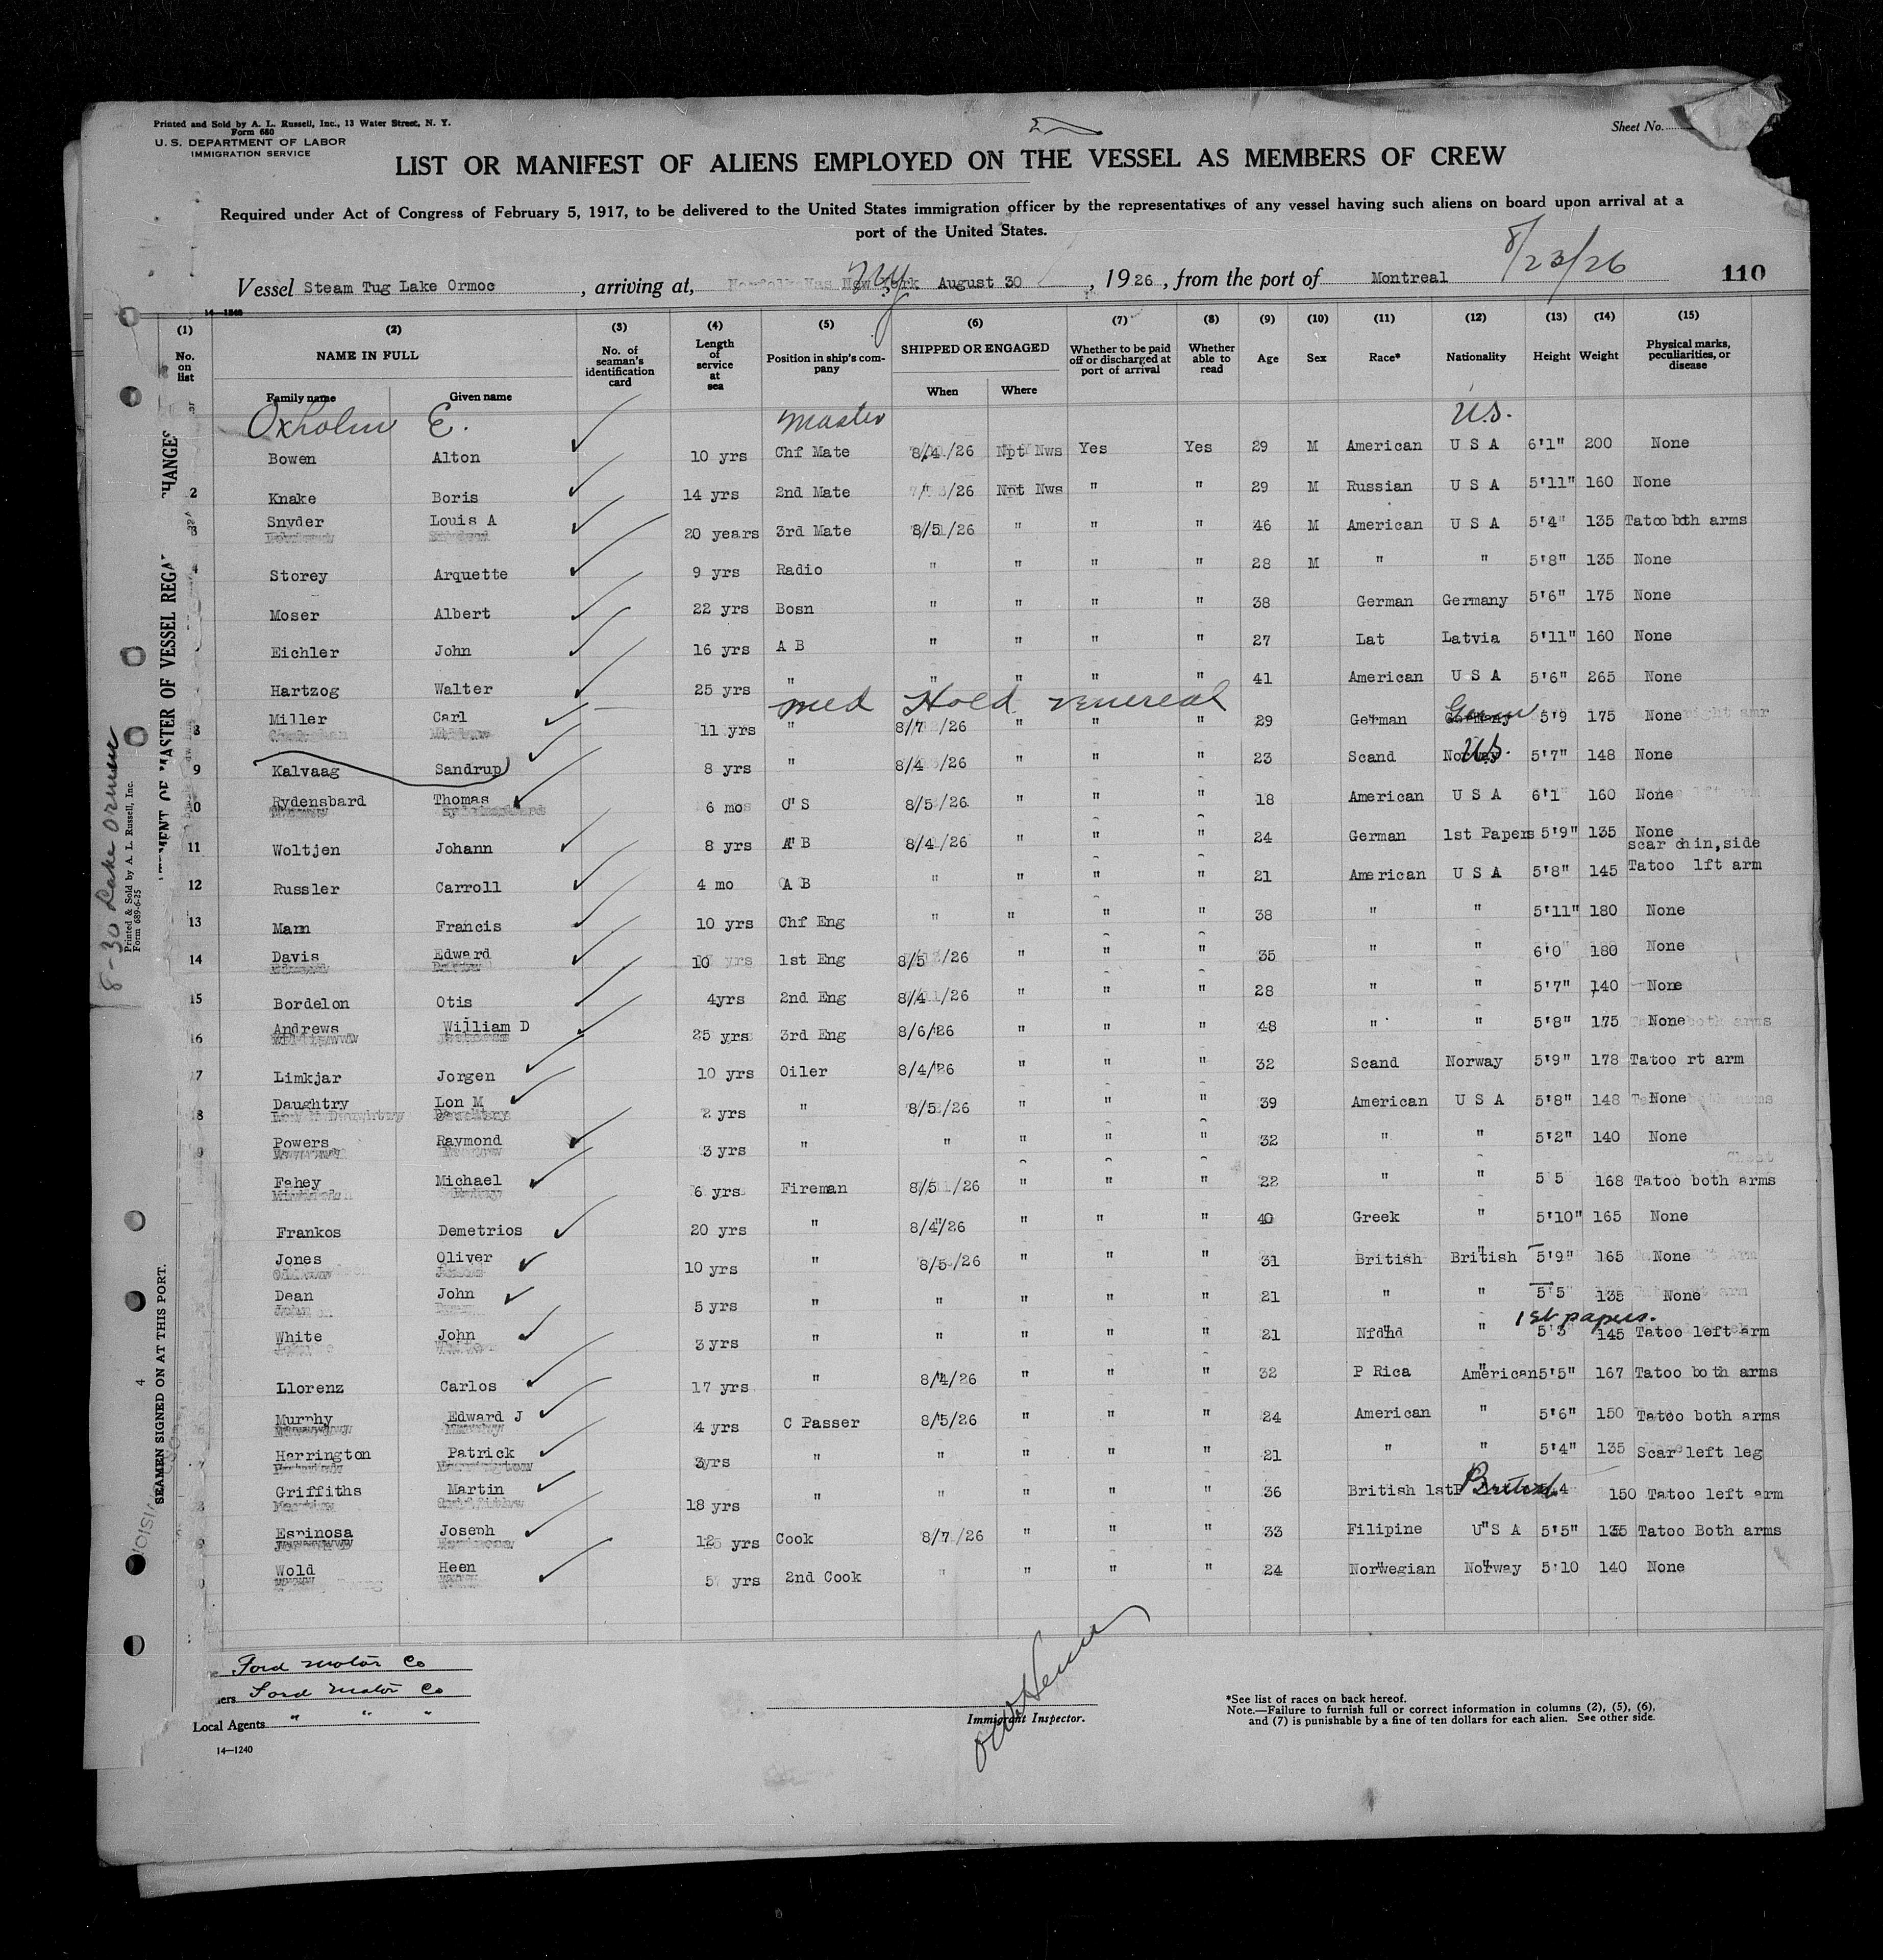 Printed and Sold by A. L. Russell, Inc., 13 Water Street, N. Y.
Form 680
U. S. DEPARTMENT OF LABOR
IMMIGRATION SERVICE
Sheet No.
LIST OR MANIFEST OF ALIENS EMPLOYED ON THE VESSEL AS MEMBERS OF CREW
Required under Act of Congress of February 5, 1917, to be delivered to the United States immigration officer by the representatives of any vessel having such aliens on board upon arrival at a
port of the United States.
8/23/26
Vessel Steam Tug Lake Ormoc , arriving at, New York August 30 , 1926 , from the port of Montreal 110
14—1240
(1) (2) (3) (4) (5) (6) (7) (8) (9) (10) (11) (12) (13) (14) (15)
No. on list NAME IN FULL No. of seaman's identification card Length of service at sea Position in ship's company SHIPPED OR ENGAGED Whether to be paid off or discharged at port of arrival Whether able to read Age Sex Race* Nationality Height Weight Physical marks, peculiarities, or disease
Family name Given name When Where
Oxholm E. Master U.S.
Bowen Alton 10 yrs Chf Mate 8/4/26 Npt Nws Yes Yes 29 M American U S A 6'1" 200 None
2 Knake Boris 14 yrs 2nd Mate /26 Npt Nws " " 29 M Russian U S A 5'11" 160 None
3 Snyder Louis A 20 years 3rd Mate 8/5/26 " " " 46 M American U S A 5'4" 135 Tatoo both arms
4 Storey Arquette 9 yrs Radio " " " " 28 M " " 5'8" 135 None
Moser Albert 22 yrs Bosn " " " " 38 German Germany 5'6" 175 None
Eichler John 16 yrs A B " " " " 27 Lat Latvia 5'11" 160 None
Hartzog Walter 25 yrs " " " " " 41 American U S A 5'6" 265 None
med Hold venereal
8 Miller Carl 11 yrs " 8/7/26 " " " 29 German Germany 5'9 175 None
9 Kalvaag Sandrup 8 yrs " 8/4/26 " " " 23 Scand Norway U.S. 5'7" 148 None
10 Rydensbard Thomas 6 mo O S 8/5/26 " " " 18 American U S A 6'1" 160 None
11 Woltjen Johann 8 yrs A B 8/4/26 " " " 24 German 1st Papers 5'9" 135 None
scar chin, side
12 Russler Carroll 4 mo A B " " " " 21 American U S A 5'8" 145 Tatoo lft arm
13 Mann Francis 10 yrs Chf Eng " " " " 38 " " 5'11" 180 None
14 Davis Edward 10 yrs 1st Eng 8/5/26 " " " 35 " " 6'0" 180 None
15 Bordelon Otis 4yrs 2nd Eng 8/4/26 " " " 28 " " 5'7" 140 None
16 Andrews William D 25 yrs 3rd Eng 8/6/26 " " " 48 " " 5'8" 175 None
17 Limkjar Jorgen 10 yrs Oiler 8/4/26 " " " 32 Scand Norway 5'9" 178 Tatoo rt arm
18 Daughtry Lon M 2 yrs " 8/5/26 " " " 39 American U S A 5'8" 148 None
9 Powers Raymond 3 yrs " " " " " 32 " " 5'2" 140 None
Fahey Michael 6 yrs Fireman 8/5/26 " " " 22 " " 5 5 168 Tatoo both arms
Frankos Demetrios 20 yrs " 8/4/26 " " " 40 Greek " 5'10" 165 None
Jones Oliver 10 yrs " 8/5/26 " " " 31 British British 5'9" 165 None
Dean John 5 yrs " " " " " 21 " " 5'5" 135 None
1st papers.
White John 3 yrs " " " " " 21 Nfdnd " 5'3 145 Tatoo left arm
Llorenz Carlos 17 yrs " 8/4/26 " " " 32 P Rica American 5'5" 167 Tatoo both arms
Murphy Edward J 4 yrs C Passer 8/5/26 " " " 24 American " 5'6" 150 Tatoo both arms
Harrington Patrick 3yrs " " " " " 21 " " 5'4" 135 Scar left leg
Griffiths Martin 18 yrs " " " " " 36 British 1stP British 4 150 Tatoo left arm
Espinosa Joseph 12 yrs Cook 8/7/26 " " " 33 Filipine U S A 5'5" 135 Tatoo Both arms
Wold Heen 5 yrs 2nd Cook " " " " 24 Norwegian Norway 5'10 140 None
Ford Motor Co
Ford Motor Co
Local Agents " " "
14—1240
Immigrant Inspector.
*See list of races on back hereof.
Note.—Failure to furnish full or correct information in columns (2), (5), (6),
and (7) is punishable by a fine of ten dollars for each alien. See other side.
8-30 Lake Ormoc
Printed & Sold by A. L. Russell, Inc.
Form 689-6-25
MASTER OF VESSEL
SEAMEN SIGNED ON AT THIS PORT.